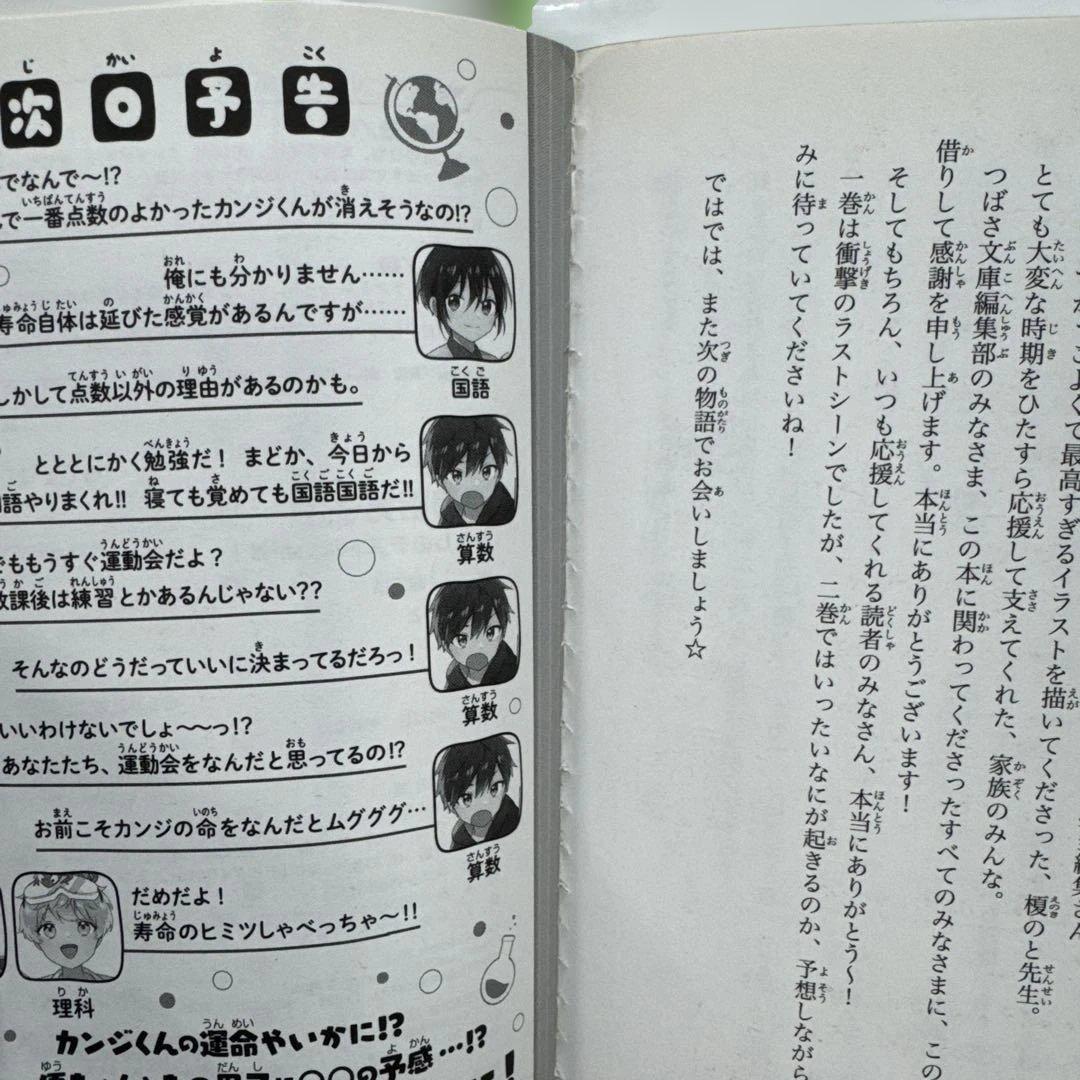 編集さん
こよくて最高すぎるイラストを描いてくださった、榎のと先生。
とても大変な時期をひたすら応援して支えてくれた、家族のみんな。
つばさ文庫編集部のみなさま、この本に関わってくださったすべてのみなさまに、この
借りして感謝を申し上げます。本当にありがとうございます！
そしてもちろん、いつも応援してくれる読者のみなさん、本当にありがとう〜！
一巻は衝撃のラストシーンでしたが、二巻ではいったいなにが起きるのか、予想しながら
みに待っていてくださいね！
ではでは、また次の物語でお会いしましょう☆
次回予告
でなんで〜!?
で一番点数のよかったカンジくんが消えそうなの!?
俺にも分かりません……
寿命自体は延びた感覚があるんですが……
国語
しかして点数以外の理由があるのかも。
とととにかく勉強だ！ まどか、今日から
語やりまくれ!! 寝ても覚めても国語国語だ!!
算数
でももうすぐ運動会だよ？
放課後は練習とかあるんじゃない??
そんなのどうだっていいに決まってるだろっ！
算数
いいわけないでしょ〜〜っ!?
あなたたち、運動会をなんだと思ってるの!?
お前こそカンジの命をなんだとムグググ…
算数
だめだよ！
寿命のヒミツしゃべっちゃ〜!!
理科
カンジくんの運命やいかに!?
男子に〇〇の予感…!?
！